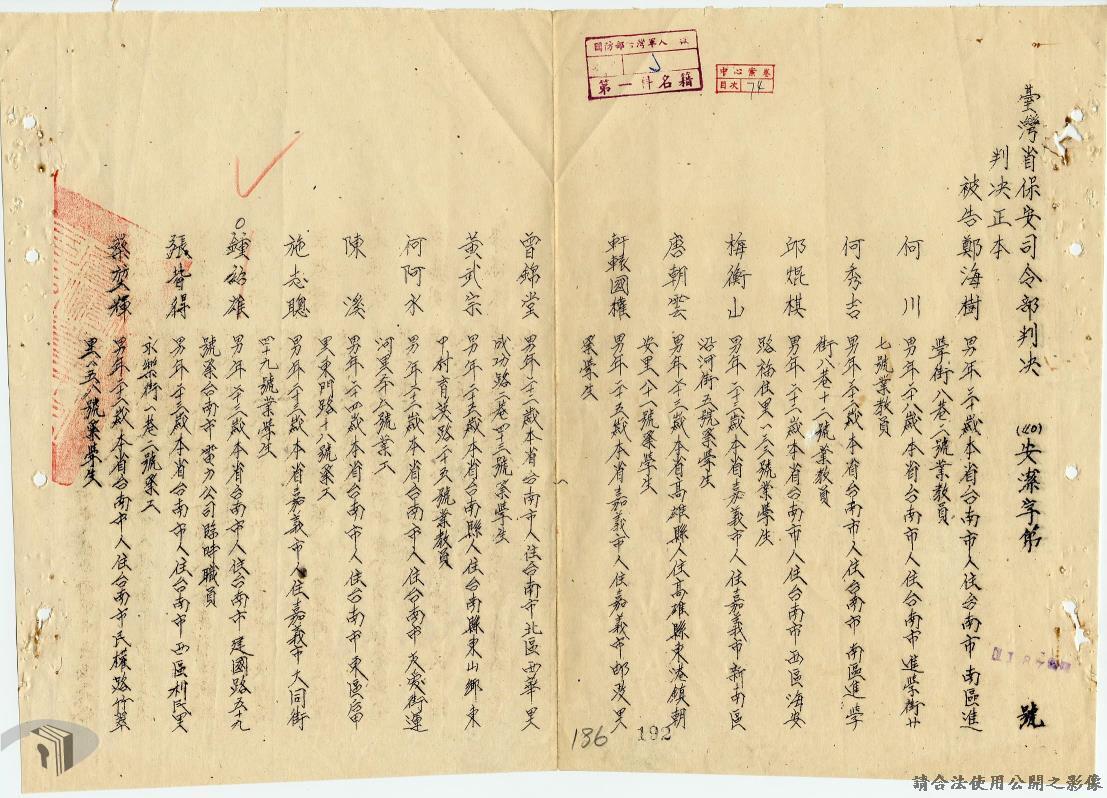 臺灣省保安司令部判決
(40)安潔字第 號
判決正本
被告鄭海樹 男年三十歲本省台南市人住台南市南區進
學街八巷二號業教員
何 川 男年二十八歲本省台南市人住台南市進學街廿
七號業教員
何秀吉 男年二十歲本省台南市人住台南市南區進學
街八巷十二號業教員
邱焜棋 男年二十二歲本省台南市人住台南市西區海安
路福住里一三號業學生
梅衡山 男年二十二歲本省嘉義市人住嘉義市新南區
沿河街五號業學生
唐朝雲 男年廿二歲本省高雄縣人住高雄縣東港鎮朝
安里八十二號業學生
軒轅國權 男年二十五歲本省嘉義市人住嘉義市
里業學生
曾錦堂 男年二十二歲本省台南市人住台南市北區西華里
成功路二巷四十三號業學生
黃武宗 男年二十五歲本省台南縣人住台南縣東山鄉東
中村育英路二十五號業教員
何阿水 男年二十二歲本省台南市人住台南市友愛街運
河里 號業工
陳 溪 男年二十四歲本省台南市人住台南市東區富
里東門路十八號業工
施志聰 男年二十三歲本省嘉義市人住嘉義市大同街
四十九號業學生
鍾裕雄 男年二十三歲本省台南市人住台南市建國路五十九
號業台南市電力公司臨時職員
張皆得 男年二十三歲本省台南市人住台南市西區利民里
永樂街一巷二號業工
蔡堃輝 男年二十二歲本省台南市人住台南市民權路竹翠
里 號業學生
第一件名籍
中心案卷
目次 74
186
192
請合法使用公開之影像